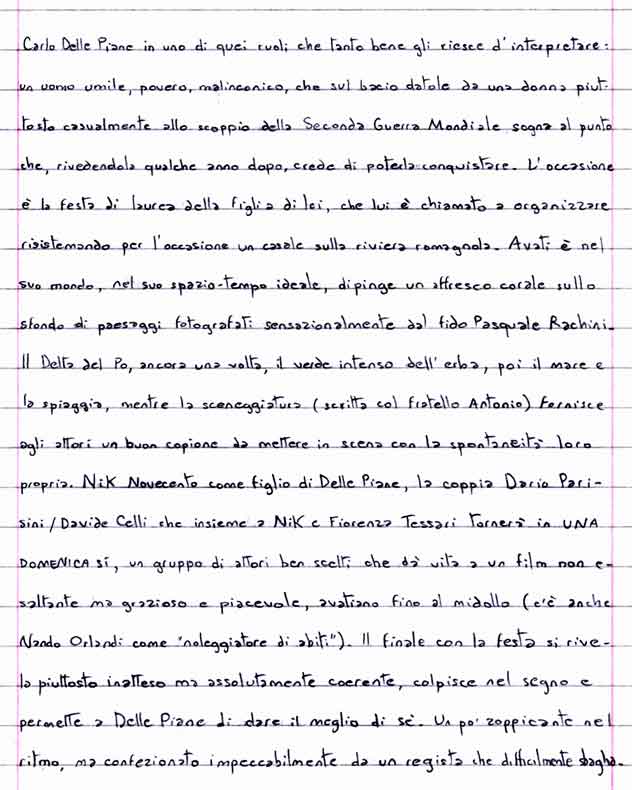 Carlo Delle Piane in uno di quei ruoli che tanto bene gli riesce d'interpretare:
un uomo umile, povero, malinconico, che sul bacio datole da una donna piut-
tosto casualmente allo scoppio della Seconda Guerra Mondiale sogna al punto
che, rivedendola qualche anno dopo, crede di poterla conquistare. L'occasione
è la festa di laurea della figlia di lei, che lui è chiamato a organizzare
risistemando per l'occasione un casale sulla riviera romagnola. Avati è nel
suo mondo, nel suo spazio-tempo ideale, dipinge un affresco corale sullo
sfondo di paesaggi fotografati sensazionalmente dal fido Pasquale Rachini.
Il Delta del Po, ancora una volta, il verde intenso dell'erba, poi il mare e
la spiaggia, mentre la sceneggiatura (scritta col fratello Antonio) fornisce
agli attori un buon copione da mettere in scena con la spontaneità loro
propria. Nik Novecento come figlio di Delle Piane, la coppia Dario Pari-
sini/Davide Celli che insieme a Nik e Fiorenza Tessari tornerà in UNA
DOMENICA SÍ, un gruppo di attori ben scelti che dà vita a un film non e-
saltante ma grazioso e piacevole, avatiano fino al midollo (c'è anche
Nando Orlandi come "noleggiatore di abiti"). Il finale con la festa si rive-
la piuttosto inatteso ma assolutamente coerente, colpisce nel segno e
permette a Delle Piane di dare il meglio di sè. Un po' zoppicante nel
ritmo, ma confezionato impeccabilmente da un regista che difficilmente sbaglia.